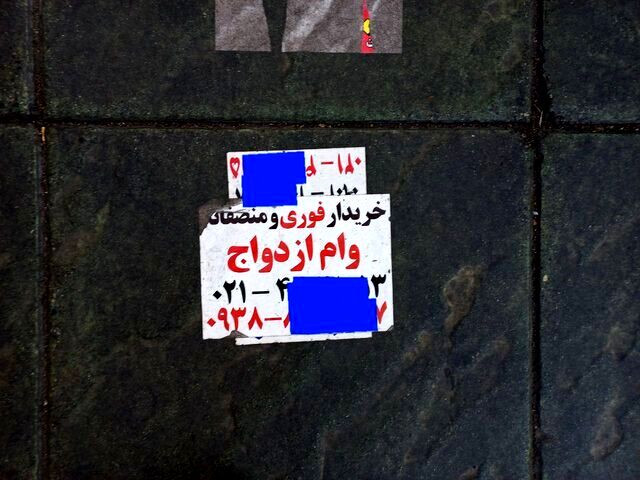 خریدار فوری و منصفانه
وام ازدواج
۰۲۱-۴ ۱۳
۰۹۳۸-۸ ۷